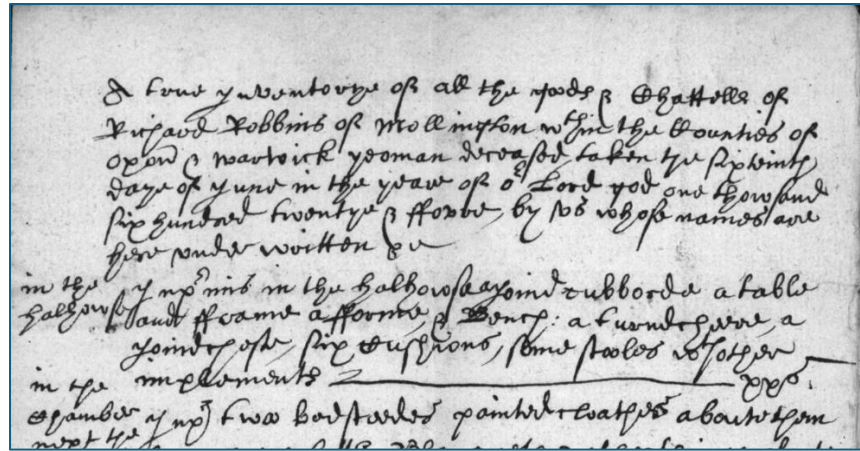 A true Inventorye of all the goods & Chattells of
Richard Robbins of Mollington wthin the Counties of
Oxon & Warwick yeoman deceased, taken the sixteinth
daye of June in the yeare of or Lord god one thowsand
six hundred twentye & ffowre, by vs whose names are
here vnder written &c
in the
halhowse
Inprimis in the halhowse a joind cubborde a table
and fframe a fforme, & Bench, a turnd cheere, a
joind cheste, six cushions, some stooles wth other
implements xxxs.
in the
Chamber
next the
Inp two bedsteedes painted cloathes aboute them